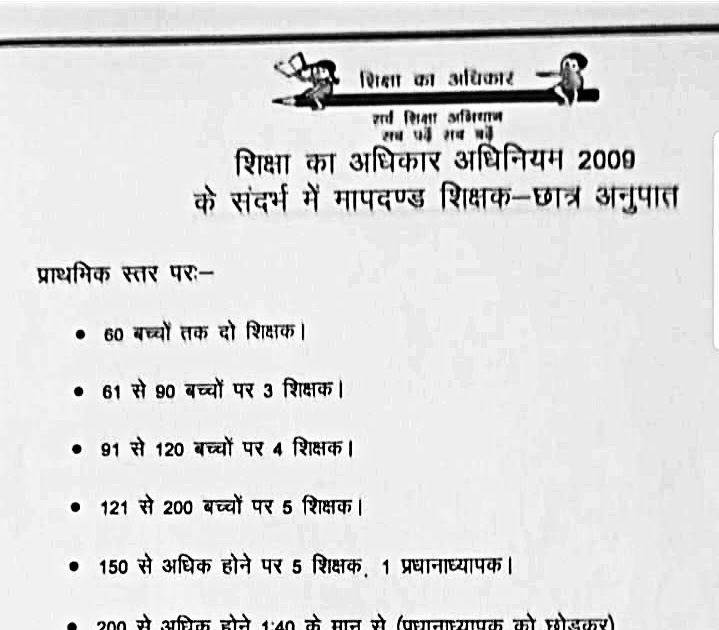 शिक्षा का अधिकार
सर्व शिक्षा अभियान
सब पढ़ें सब बढ़ें
शिक्षा का अधिकार अधिनियम 2009
के संदर्भ में मापदण्ड शिक्षक–छात्र अनुपात
प्राथमिक स्तर परः–
• 60 बच्चों तक दो शिक्षक।
• 61 से 90 बच्चों पर 3 शिक्षक।
• 91 से 120 बच्चों पर 4 शिक्षक।
• 121 से 200 बच्चों पर 5 शिक्षक।
• 150 से अधिक होने पर 5 शिक्षक, 1 प्रधानाध्यापक।
• 200 से अधिक होने 1:40 के मान से (प्रधानाध्यापक को छोडकर)